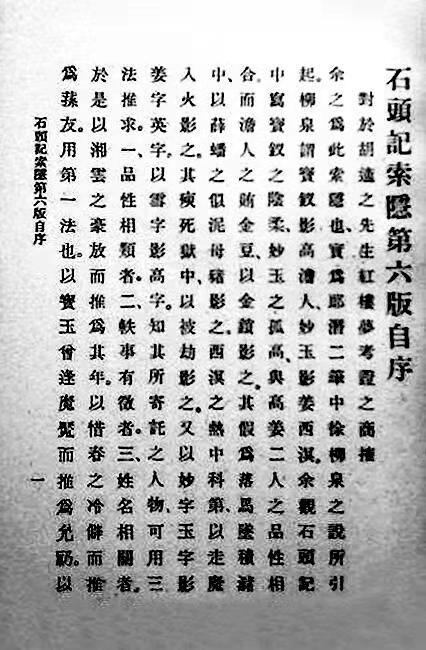 石頭記索隱第六版自序
對於胡適之先生紅樓夢考證之商榷
余之爲此索隱也、實爲郎潛二筆中徐柳泉之說所引
起。柳泉謂寶釵影高澹人、妙玉影姜西溟。余觀石頭記
中寫寶釵之陰柔、妙玉之孤高、與高姜二人之品性相
合。而澹人之賄金豆、以金鎖影之。其假爲落馬墜積瀦
中、以薛蟠之似泥母豬影之。西溟之熱中科第、以走魔
入火影之。其瘐死獄中、以被劫影之。又以妙字玉字影
姜字英字。以雪字影高字。知其所寄託之人物、可用三
法推求。一、品性相類者。二、軼事有徵者。三、姓名相關者。
於是以湘雲之豪放而推爲其年。以惜春之冷僻而推
爲蓀友。用第一法也。以寶玉曾逢魔魘而推爲允礽。以
石頭記索隱第六版自序
一